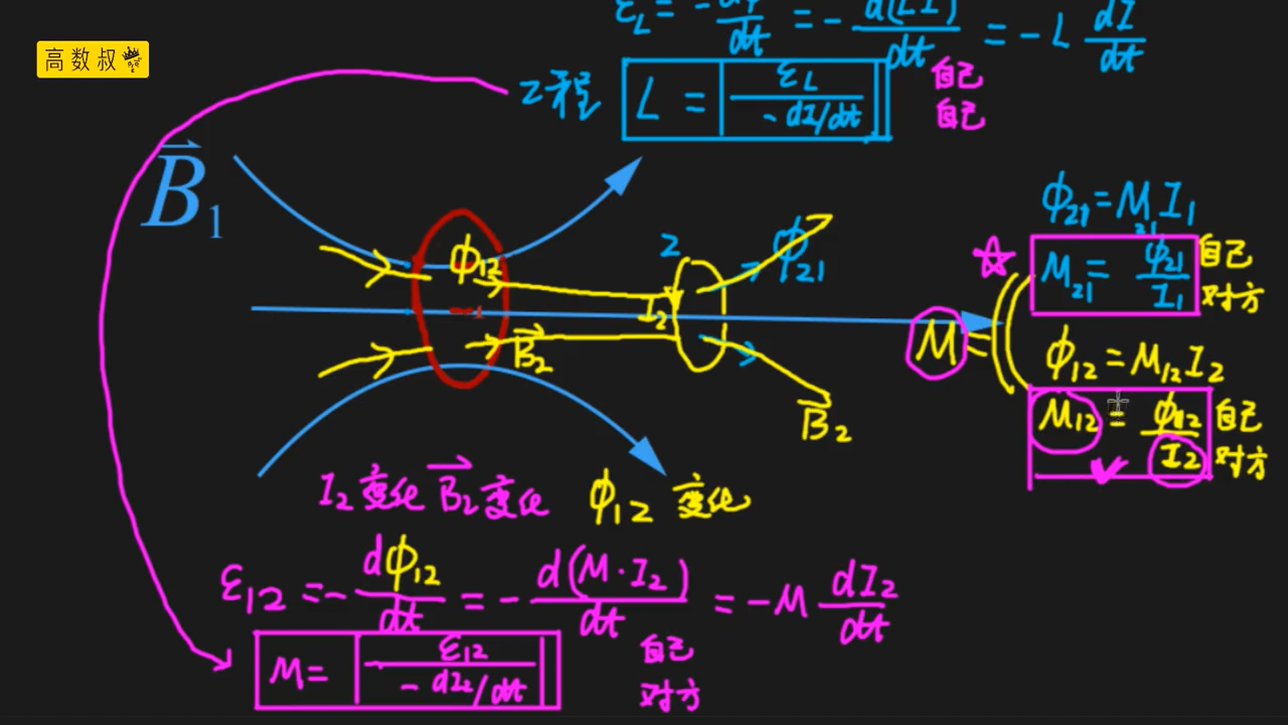 ε_L = -dφ/dt = -d(LI)/dt = -L dI/dt
高数叔
工程 L = |ε_L/(-dI/dt)| 自己
自己
B⃗₁
φ₂₁ = M₂₁I₁
φ₁₂
2
φ₂₁
M₂₁ = φ₂₁/I₁ 自己
对方
1
I₂
B⃗₂
M =
φ₁₂ = M₁₂I₂
B⃗₂
M₁₂ = φ₁₂/I₂ 自己
对方
I₂ 变化 B⃗₂ 变化 φ₁₂ 变化
ε₁₂ = -dφ₁₂/dt = -d(M·I₂)/dt = -M dI₂/dt
M = |ε₁₂/(-dI₂/dt)| 自己
对方